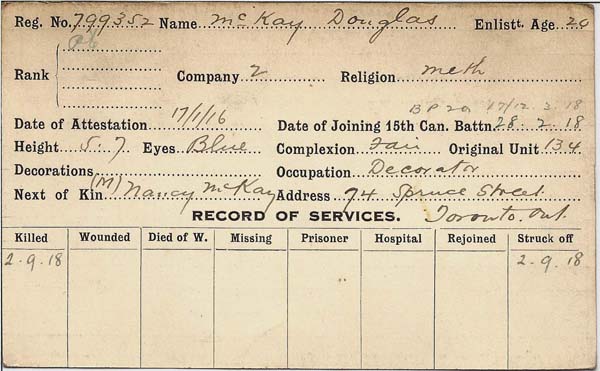 Reg. No. 799352 Name McKay Douglas Enlistt. Age 20
Pte
Rank Company 2 Religion meth
BP2a 17/12 2.18
Date of Attestation 17/1/16 Date of Joining 15th Can. Battn. 28.2.18
Height 5.7 Eyes Blue Complexion Fair Original Unit 134
Decorations Occupation Decorator
Next of Kin (M) Nancy McKay Address 74 Spruce Street
RECORD OF SERVICES. Toronto. Ont.
Killed Wounded Died of W. Missing Prisoner Hospital Rejoined Struck off
2-9.18 2-9.18